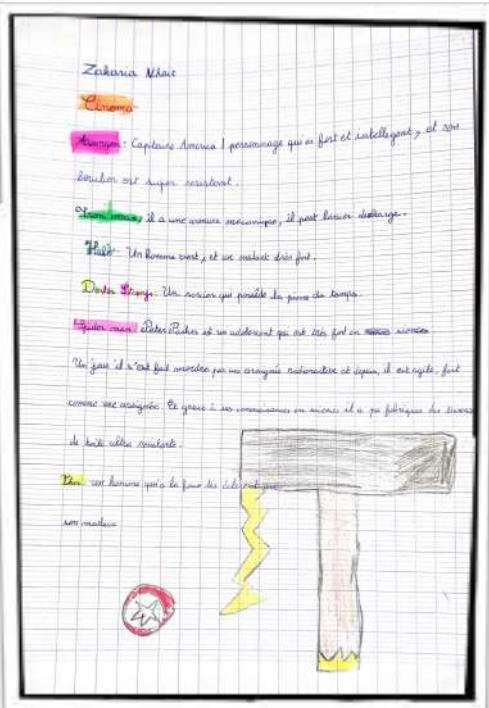 Zakaria
Cinema
: Capitaine America 1 personnage qui es fort et intellegant, et son
bouclier est super resistant.
Iron man, il a une armure mecanique, il peut lancer decharge.
Hulk. Un homme vert, et un très fort.
Doctor Strange. Un sorcier qui posséde la pierre du temps.
Spider man: Peter Parker est un adolescent qui est très fort en
Un jour il s'est fait mordre par une araignée radioactive et depuis, il est agile, fort
comme une araignée. Et grace à ses connaissances en il a pu fabriquer des
de toile ultra
Thor: un homme qui a la
son marteau